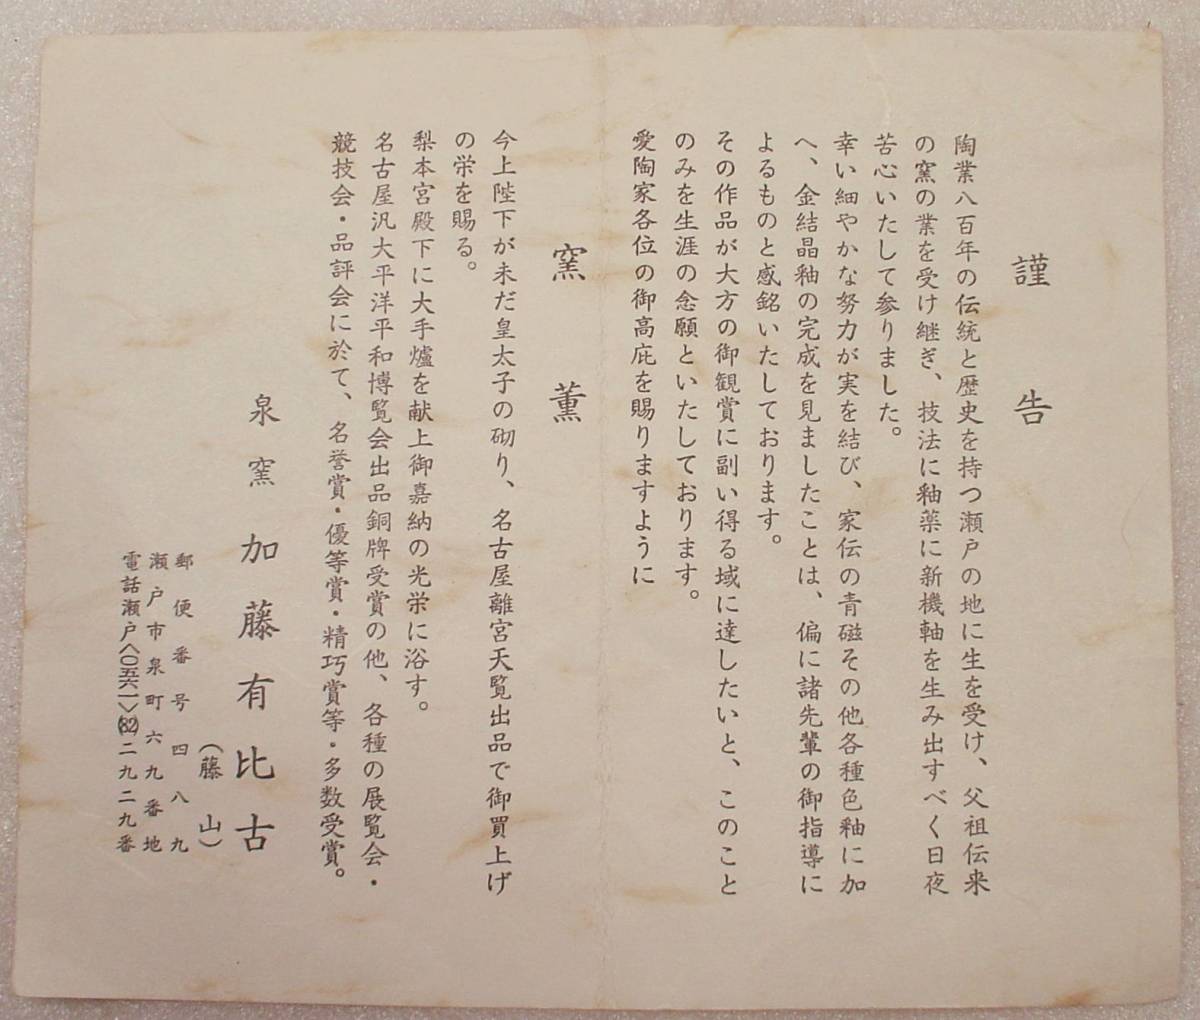 謹告
陶業八百年の伝統と歴史を持つ瀬戸の地に生を受け、父祖伝来
の窯の業を受け継ぎ、技法に釉薬に新機軸を生み出すべく日夜
苦心いたして参りました。
幸い細やかな努力が実を結び、家伝の青磁その他各種色釉に加
へ、金結晶釉の完成を見ましたことは、偏に諸先輩の御指導に
よるものと感銘いたしております。
その作品が大方の御観賞に副い得る域に達したいと、このこと
のみを生涯の念願といたしております。
愛陶家各位の御高庇を賜りますように
窯薫
今上陛下が未だ皇太子の砌り、名古屋離宮天覧出品で御買上げ
の栄を賜る。
梨本宮殿下に大手爐を献上御嘉納の光栄に浴す。
名古屋汎大平洋平和博覧会出品銅牌受賞の他、各種の展覧会・
競技会・品評会に於て、名誉賞・優等賞・精巧賞等・多数受賞。
泉窯 加藤有比古
（藤山）
郵便番号四八九
瀬戸市泉町六九番地
電話瀬戸〈〇五六一〉(82)二九二九番